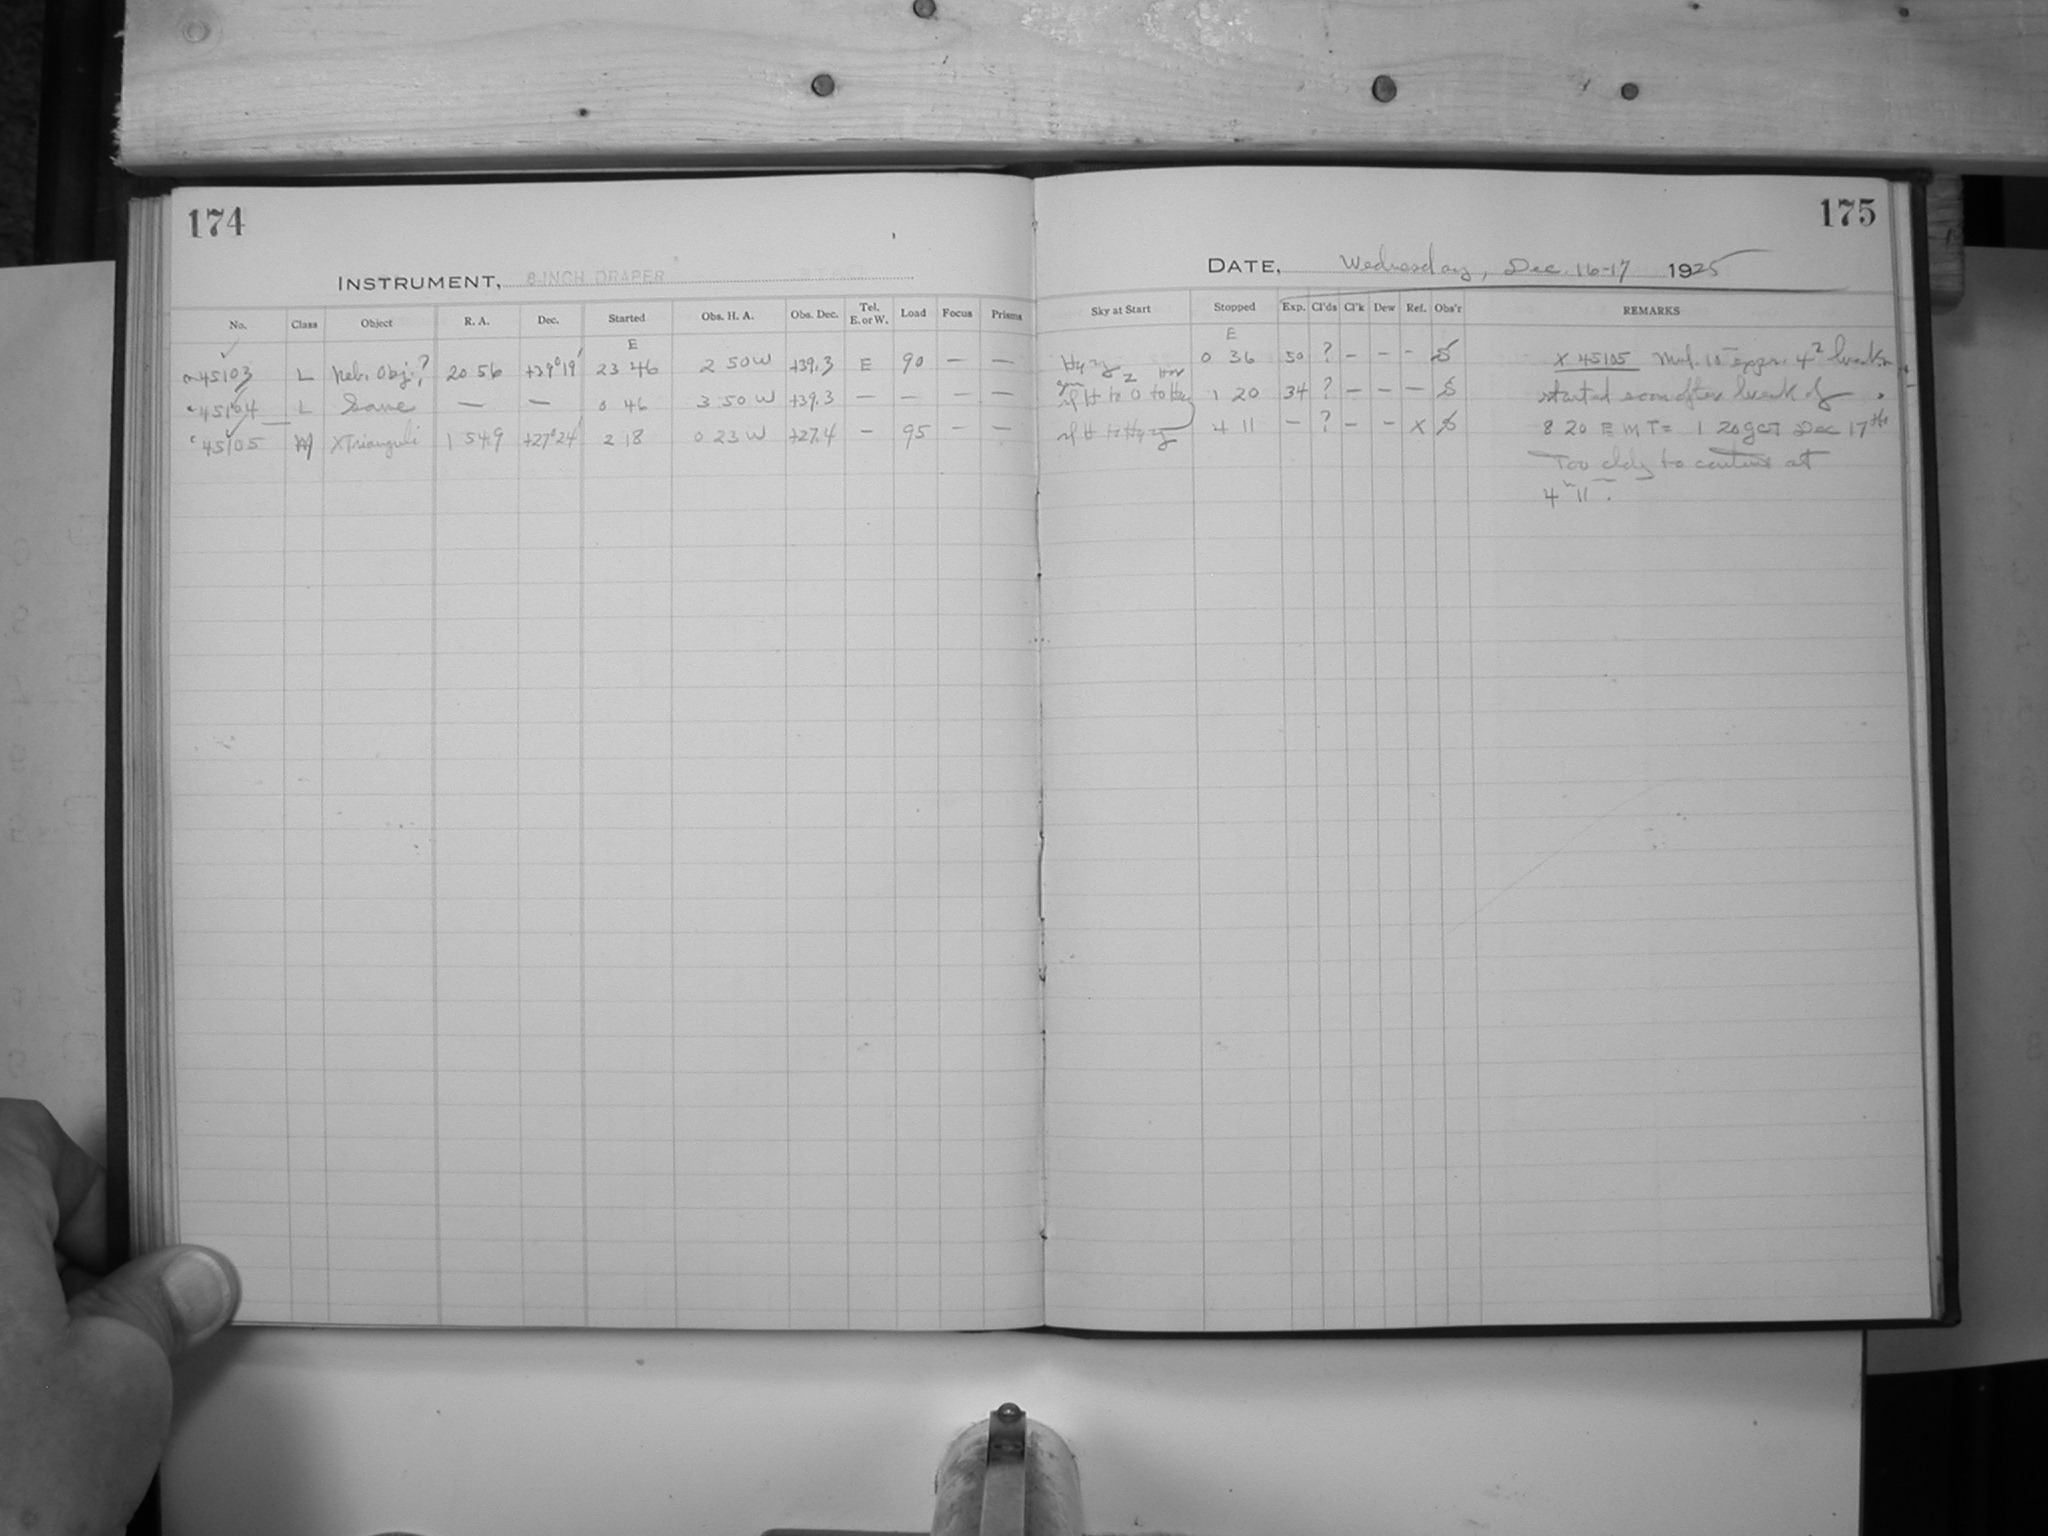 174
INSTRUMENT, 8-INCH DRAPER
No. Class Object R. A. Dec. Started Obs. H. A. Obs. Dec. Tel. E. or W. Load Focus Prisms
E
45103 L Neb. Obj.? 20 56 +39°19' 23 46 2 50 W +39.3 E 90 — —
45104 L Same — — 0 46 3 50 W +39.3 — — — —
45105 X Trianguli 1 54.9 +27°24' 2 18 0 23 W +27.4 — 95 — —
175
DATE, Wednesday, Dec. 16-17 1925
Sky at Start Stopped Exp. Cl'ds Cl'k Dew Ref. Obs'r REMARKS
E
0 36 50 ? — — - S X 45105
1 20 34 ? — — — S started soon after break of
4 11 — ? — — X S 8 20 E M T = 1 20 GCT Dec 17th
Too cldy to continue at
4h 11m.